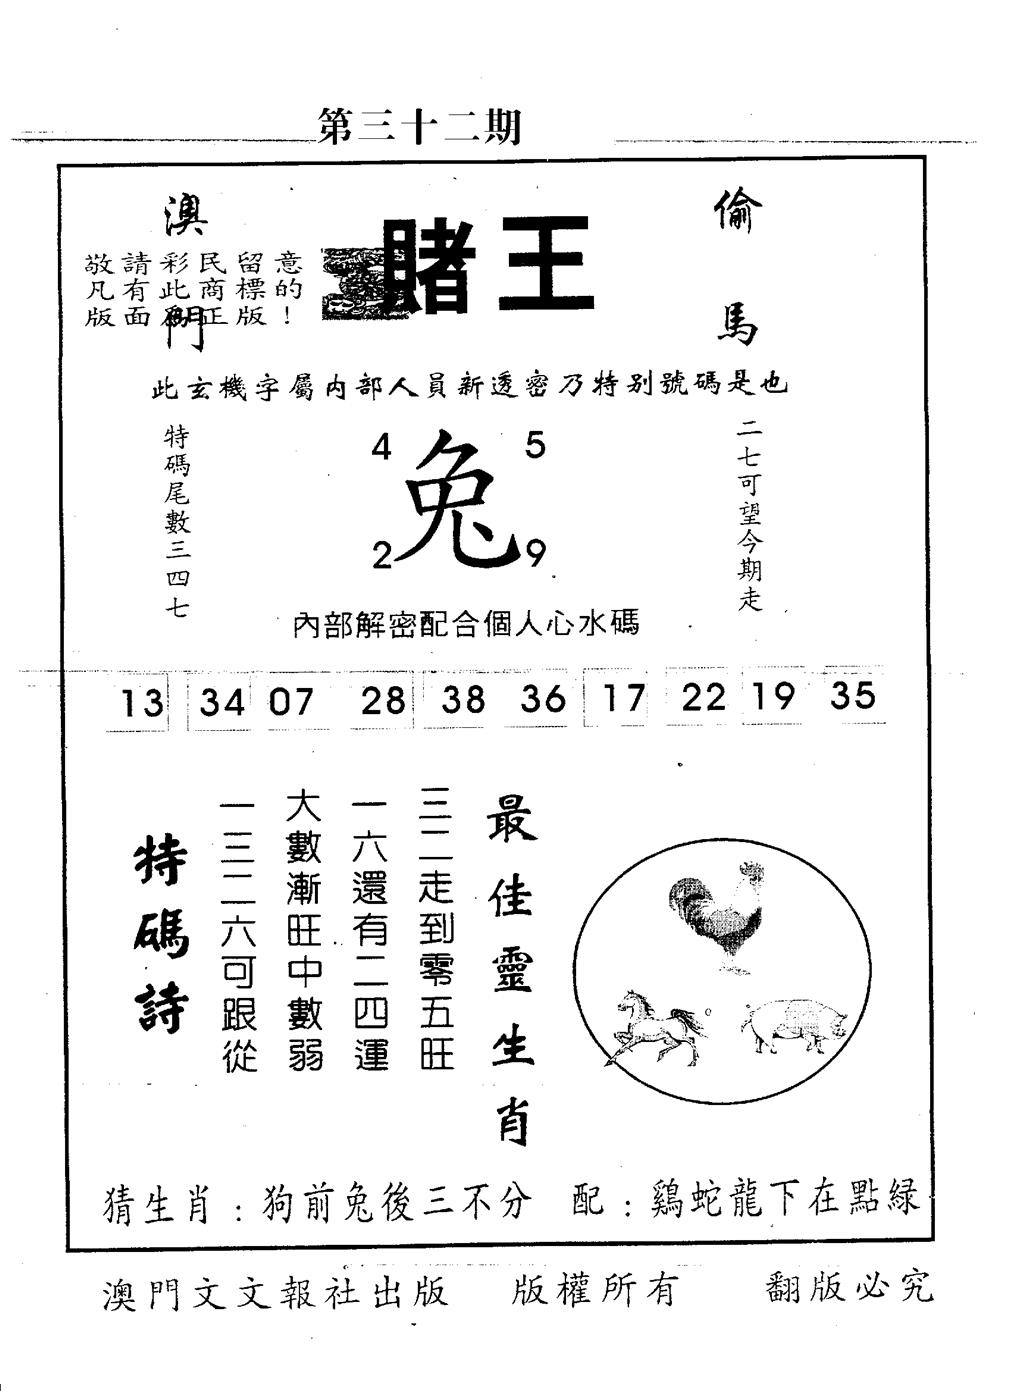 第三十二期
澳門
賭王
偷馬
敬請彩民留意
凡有此商標的
版面為正版！
此玄機字屬內部人員新透密乃特別號碼是也
特碼尾數三四七
4 5
兔
2 9
二七可望今期走
內部解密配合個人心水碼
13 34 07 28 38 36 17 22 19 35
最佳靈生肖
三二走到零五旺
一六還有二四運
大數漸旺中數弱
一三二六可跟從
特碼詩
猜生肖：狗前兔後三不分 配：鷄蛇龍下在點緑
澳門文文報社出版 版權所有 翻版必究